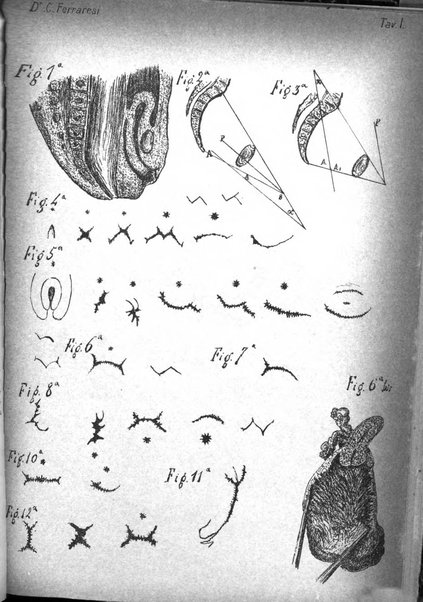 Dr. C. Ferraresi
Tav. I.
Fig. 1ª
Fig. 2ª
Fig. 3ª
Fig. 4ª
Fig. 5ª
Fig. 6ª
Fig. 7ª
Fig. 6ª bis
Fig. 8ª
Fig. 10ª
Fig. 11ª
Fig. 12ª